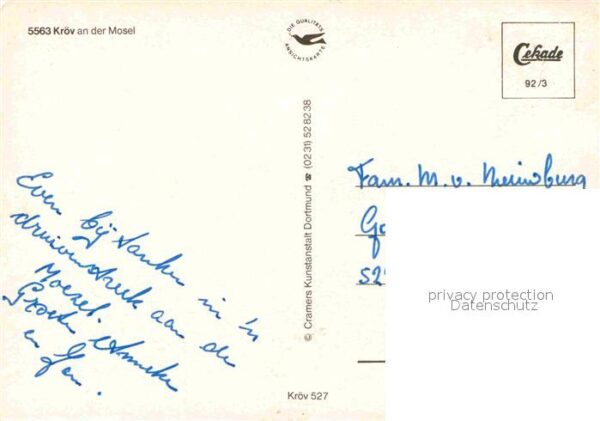 5563 Kröv an der Mosel
DIE QUALITÄTS
ANSICHTSKARTE
Cekade
92/3
© Cramers Kunstanstalt Dortmund ☎ (0231) 52 82 38
Even bij tanken in 'n
druivenstreek aan de
Moezel.
Groeten Anneke
en Jan.
Fam. M. v.
privacy protection
Datenschutz
Kröv 527